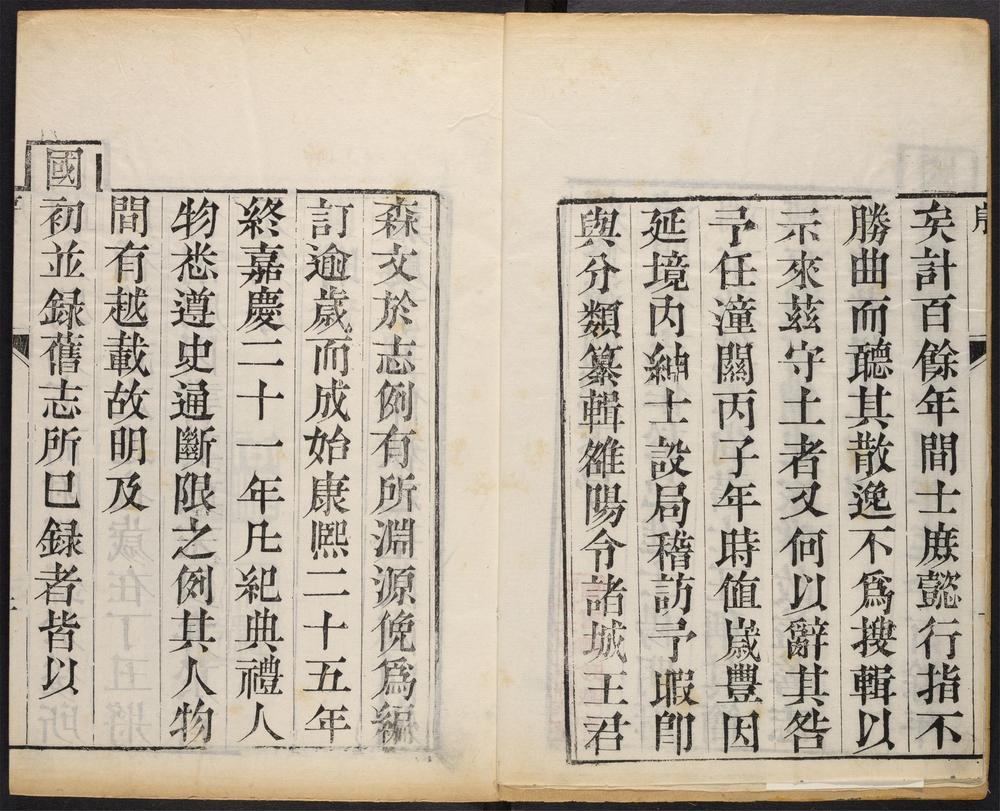 矣計百餘年間士庶懿行指不
勝曲而聽其散逸不爲搜輯以
示來茲守土者又何以辭其咎
予任潼關丙子年時值歲豐因
延境内紳士設局稽訪予暇卽
與分類纂輯雒陽令諸城王君
森文於志例有所淵源俛爲編
訂逾歲而成始康熙二十五年
終嘉慶二十一年凡紀典禮人
物悉遵史通斷限之例其人物
間有越載故明及
國初並録舊志所巳録者皆以